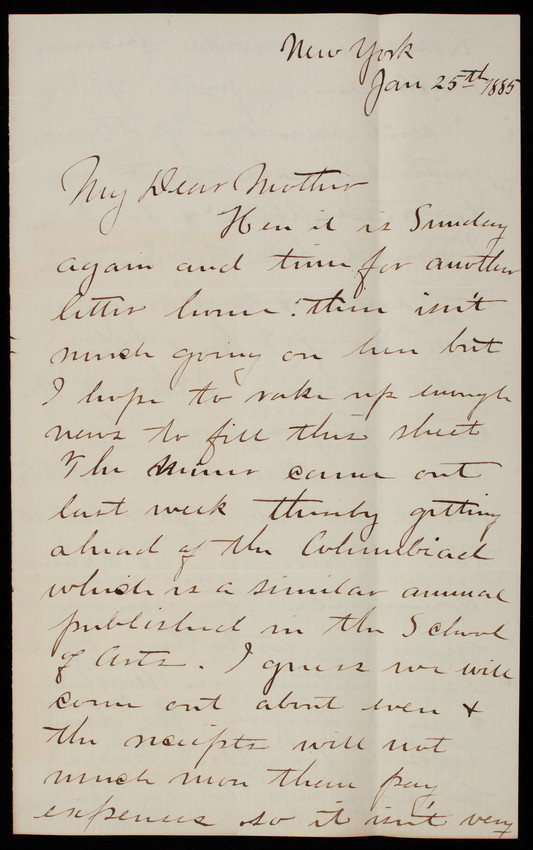 New York
Jan 25th 1885
My Dear Mother
Here it is Sunday
again and time for another
letter home. there isn't
much going on here but
I hope to rake up enough
news to fill this sheet
The Miner came out
last week thereby getting
ahead of the Columbiad
which is a similar annual
published in the School
of Arts. I guess we will
come out about even &
the receipts will not
much more than pay
expenses so it isn't very